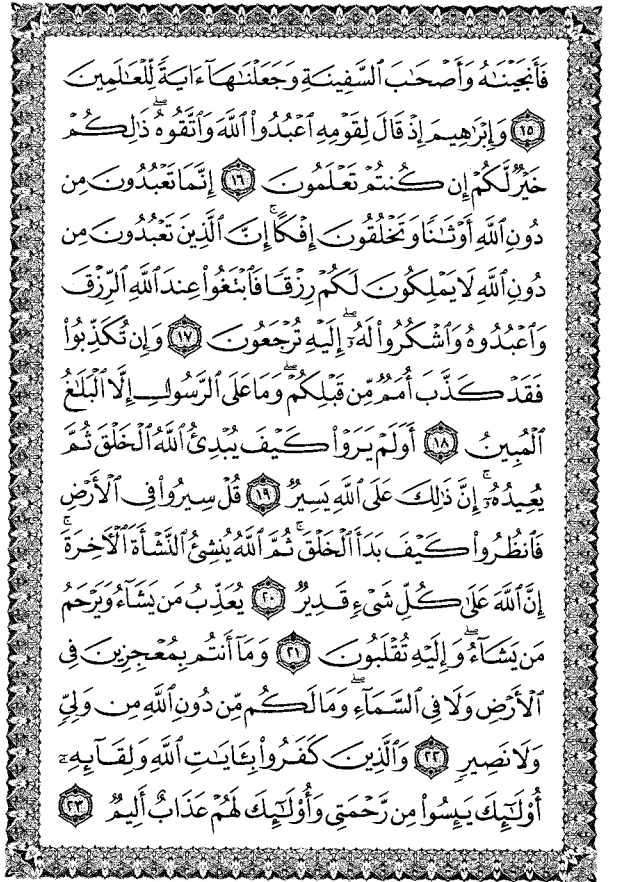 فَأَنجَيْنَٰهُ وَأَصْحَٰبَ ٱلسَّفِينَةِ وَجَعَلْنَٰهَآ ءَايَةً لِّلْعَٰلَمِينَ
١٥ وَإِبْرَٰهِيمَ إِذْ قَالَ لِقَوْمِهِ ٱعْبُدُوا۟ ٱللَّهَ وَٱتَّقُوهُ ۖ ذَٰلِكُمْ
خَيْرٌ لَّكُمْ إِن كُنتُمْ تَعْلَمُونَ ١٦ إِنَّمَا تَعْبُدُونَ مِن
دُونِ ٱللَّهِ أَوْثَٰنًا وَتَخْلُقُونَ إِفْكًا ۚ إِنَّ ٱلَّذِينَ تَعْبُدُونَ مِن
دُونِ ٱللَّهِ لَا يَمْلِكُونَ لَكُمْ رِزْقًا فَٱبْتَغُوا۟ عِندَ ٱللَّهِ ٱلرِّزْقَ
وَٱعْبُدُوهُ وَٱشْكُرُوا۟ لَهُۥٓ ۖ إِلَيْهِ تُرْجَعُونَ ١٧ وَإِن تُكَذِّبُوا۟
فَقَدْ كَذَّبَ أُمَمٌ مِّن قَبْلِكُمْ ۖ وَمَا عَلَى ٱلرَّسُولِ إِلَّا ٱلْبَلَٰغُ
ٱلْمُبِينُ ١٨ أَوَلَمْ يَرَوْا۟ كَيْفَ يُبْدِئُ ٱللَّهُ ٱلْخَلْقَ ثُمَّ
يُعِيدُهُۥٓ ۚ إِنَّ ذَٰلِكَ عَلَى ٱللَّهِ يَسِيرٌ ١٩ قُلْ سِيرُوا۟ فِى ٱلْأَرْضِ
فَٱنظُرُوا۟ كَيْفَ بَدَأَ ٱلْخَلْقَ ۚ ثُمَّ ٱللَّهُ يُنشِئُ ٱلنَّشْأَةَ ٱلْءَاخِرَةَ ۚ
إِنَّ ٱللَّهَ عَلَىٰ كُلِّ شَىْءٍ قَدِيرٌ ٢٠ يُعَذِّبُ مَن يَشَآءُ وَيَرْحَمُ
مَن يَشَآءُ ۖ وَإِلَيْهِ تُقْلَبُونَ ٢١ وَمَآ أَنتُم بِمُعْجِزِينَ فِى
ٱلْأَرْضِ وَلَا فِى ٱلسَّمَآءِ ۖ وَمَا لَكُم مِّن دُونِ ٱللَّهِ مِن وَلِىٍّ
وَلَا نَصِيرٍ ٢٢ وَٱلَّذِينَ كَفَرُوا۟ بِـَٔايَٰتِ ٱللَّهِ وَلِقَآئِهِۦٓ
أُو۟لَٰٓئِكَ يَئِسُوا۟ مِن رَّحْمَتِى وَأُو۟لَٰٓئِكَ لَهُمْ عَذَابٌ أَلِيمٌ ٢٣